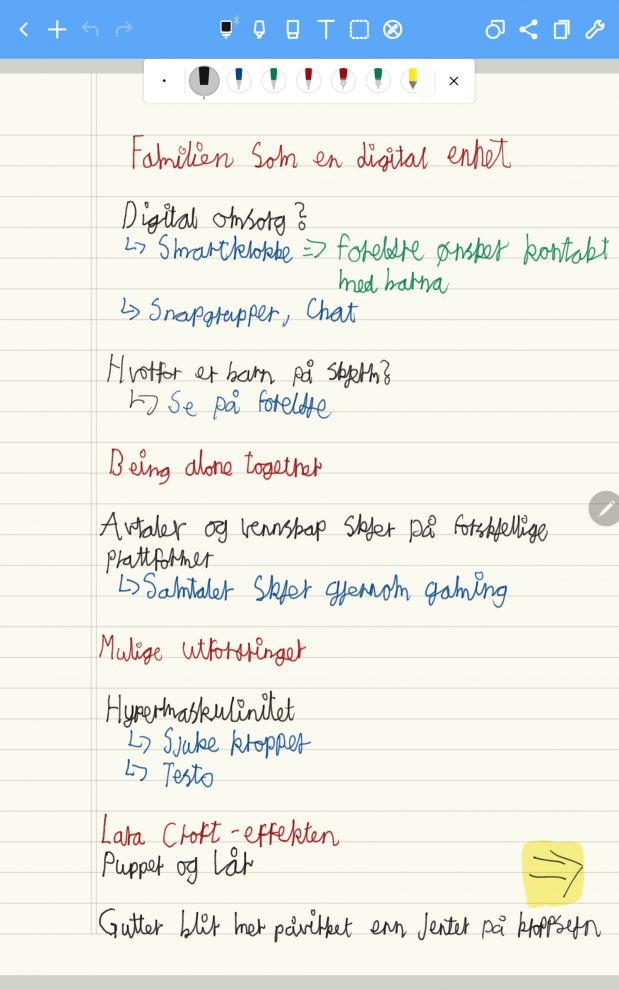 Familien som en digital enhet
Digital omsorg?
↳ Smartklokke => foreldre ønsker kontakt
med barna
↳ Snapgrupper, Chat
Hvorfor er barn på skjerm?
↳ Se på foreldre
Being alone together
Avtaler og vennskap skjer på forskjellige
plattformer
↳ Samtaler skjer gjennom gaming
Mulige utforringer
Hypermaskulinitet
↳ Sjuke kropper
↳ Testo
Lara Croft-effekten
Pupper og lår
Gutter blir mer påvirket enn jenter på